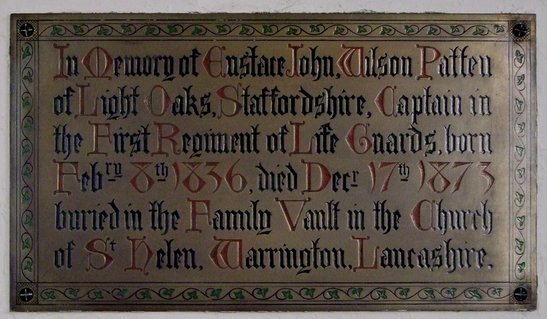 In Memory of Eustace John, Wilson Patten
of Light Oaks, Staffordshire, Captain in
the First Regiment of Life Guards, born
Febry 8th 1836, died Decr 17th 1873
buried in the Family Vault in the Church
of St Helen, Warrington, Lancashire,